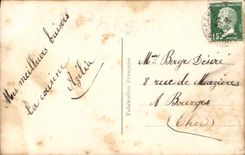 Mes meilleurs baisers
La cousine
Azélia
Fabrication Française
Mme Berge Désiré
8 rue de Mazières
A Bourges
(Cher)